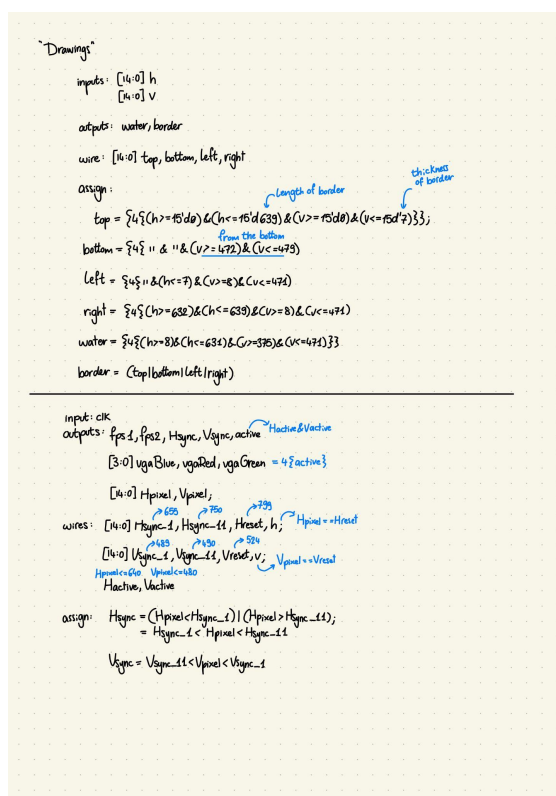 "Drawings"
inputs: [14:0] h
[14:0] v
outputs: water, border
wire: [14:0] top, bottom, left, right
assign:
length of border
thickness of border
top = {4{(h>=15'd0)&(h<=15'd639)&(v>=15'd0)&(v<=15d'7)}};
from the bottom
bottom = {4{ " & "&(v>=472)&(v<=479)
left = {4{ "&(h<=7)&(v>=8)&(v<=471)
right = {4{(h>=632)&(h<=639)&(v>=8)&(v<=471)
water = {4{(h>=8)&(h<=631)&(v>=375)&(v<=471)}}
border = (top|bottom|left|right)
input: clk
outputs: fps1, fps2, Hsync, Vsync, active Hactive&Vactive
[3:0] vgaBlue, vgaRed, vgaGreen = 4{active}
[14:0] Hpixel, Vpixel;
659 750 799
wires: [14:0] Hsync_1, Hsync_11, Hreset, h; Hpixel==Hreset
489 490 524
[14:0] Vsync_1, Vsync_11, Vreset, v; Vpixel==Vreset
Hpixel<=640 Vpixel<=480
Hactive, Vactive
assign: Hsync = (Hpixel<Hsync_1)|(Hpixel>Hsync_11);
= Hsync_1 < Hpixel < Hsync_11
Vsync = Vsync_11<Vpixel<Vsync_1